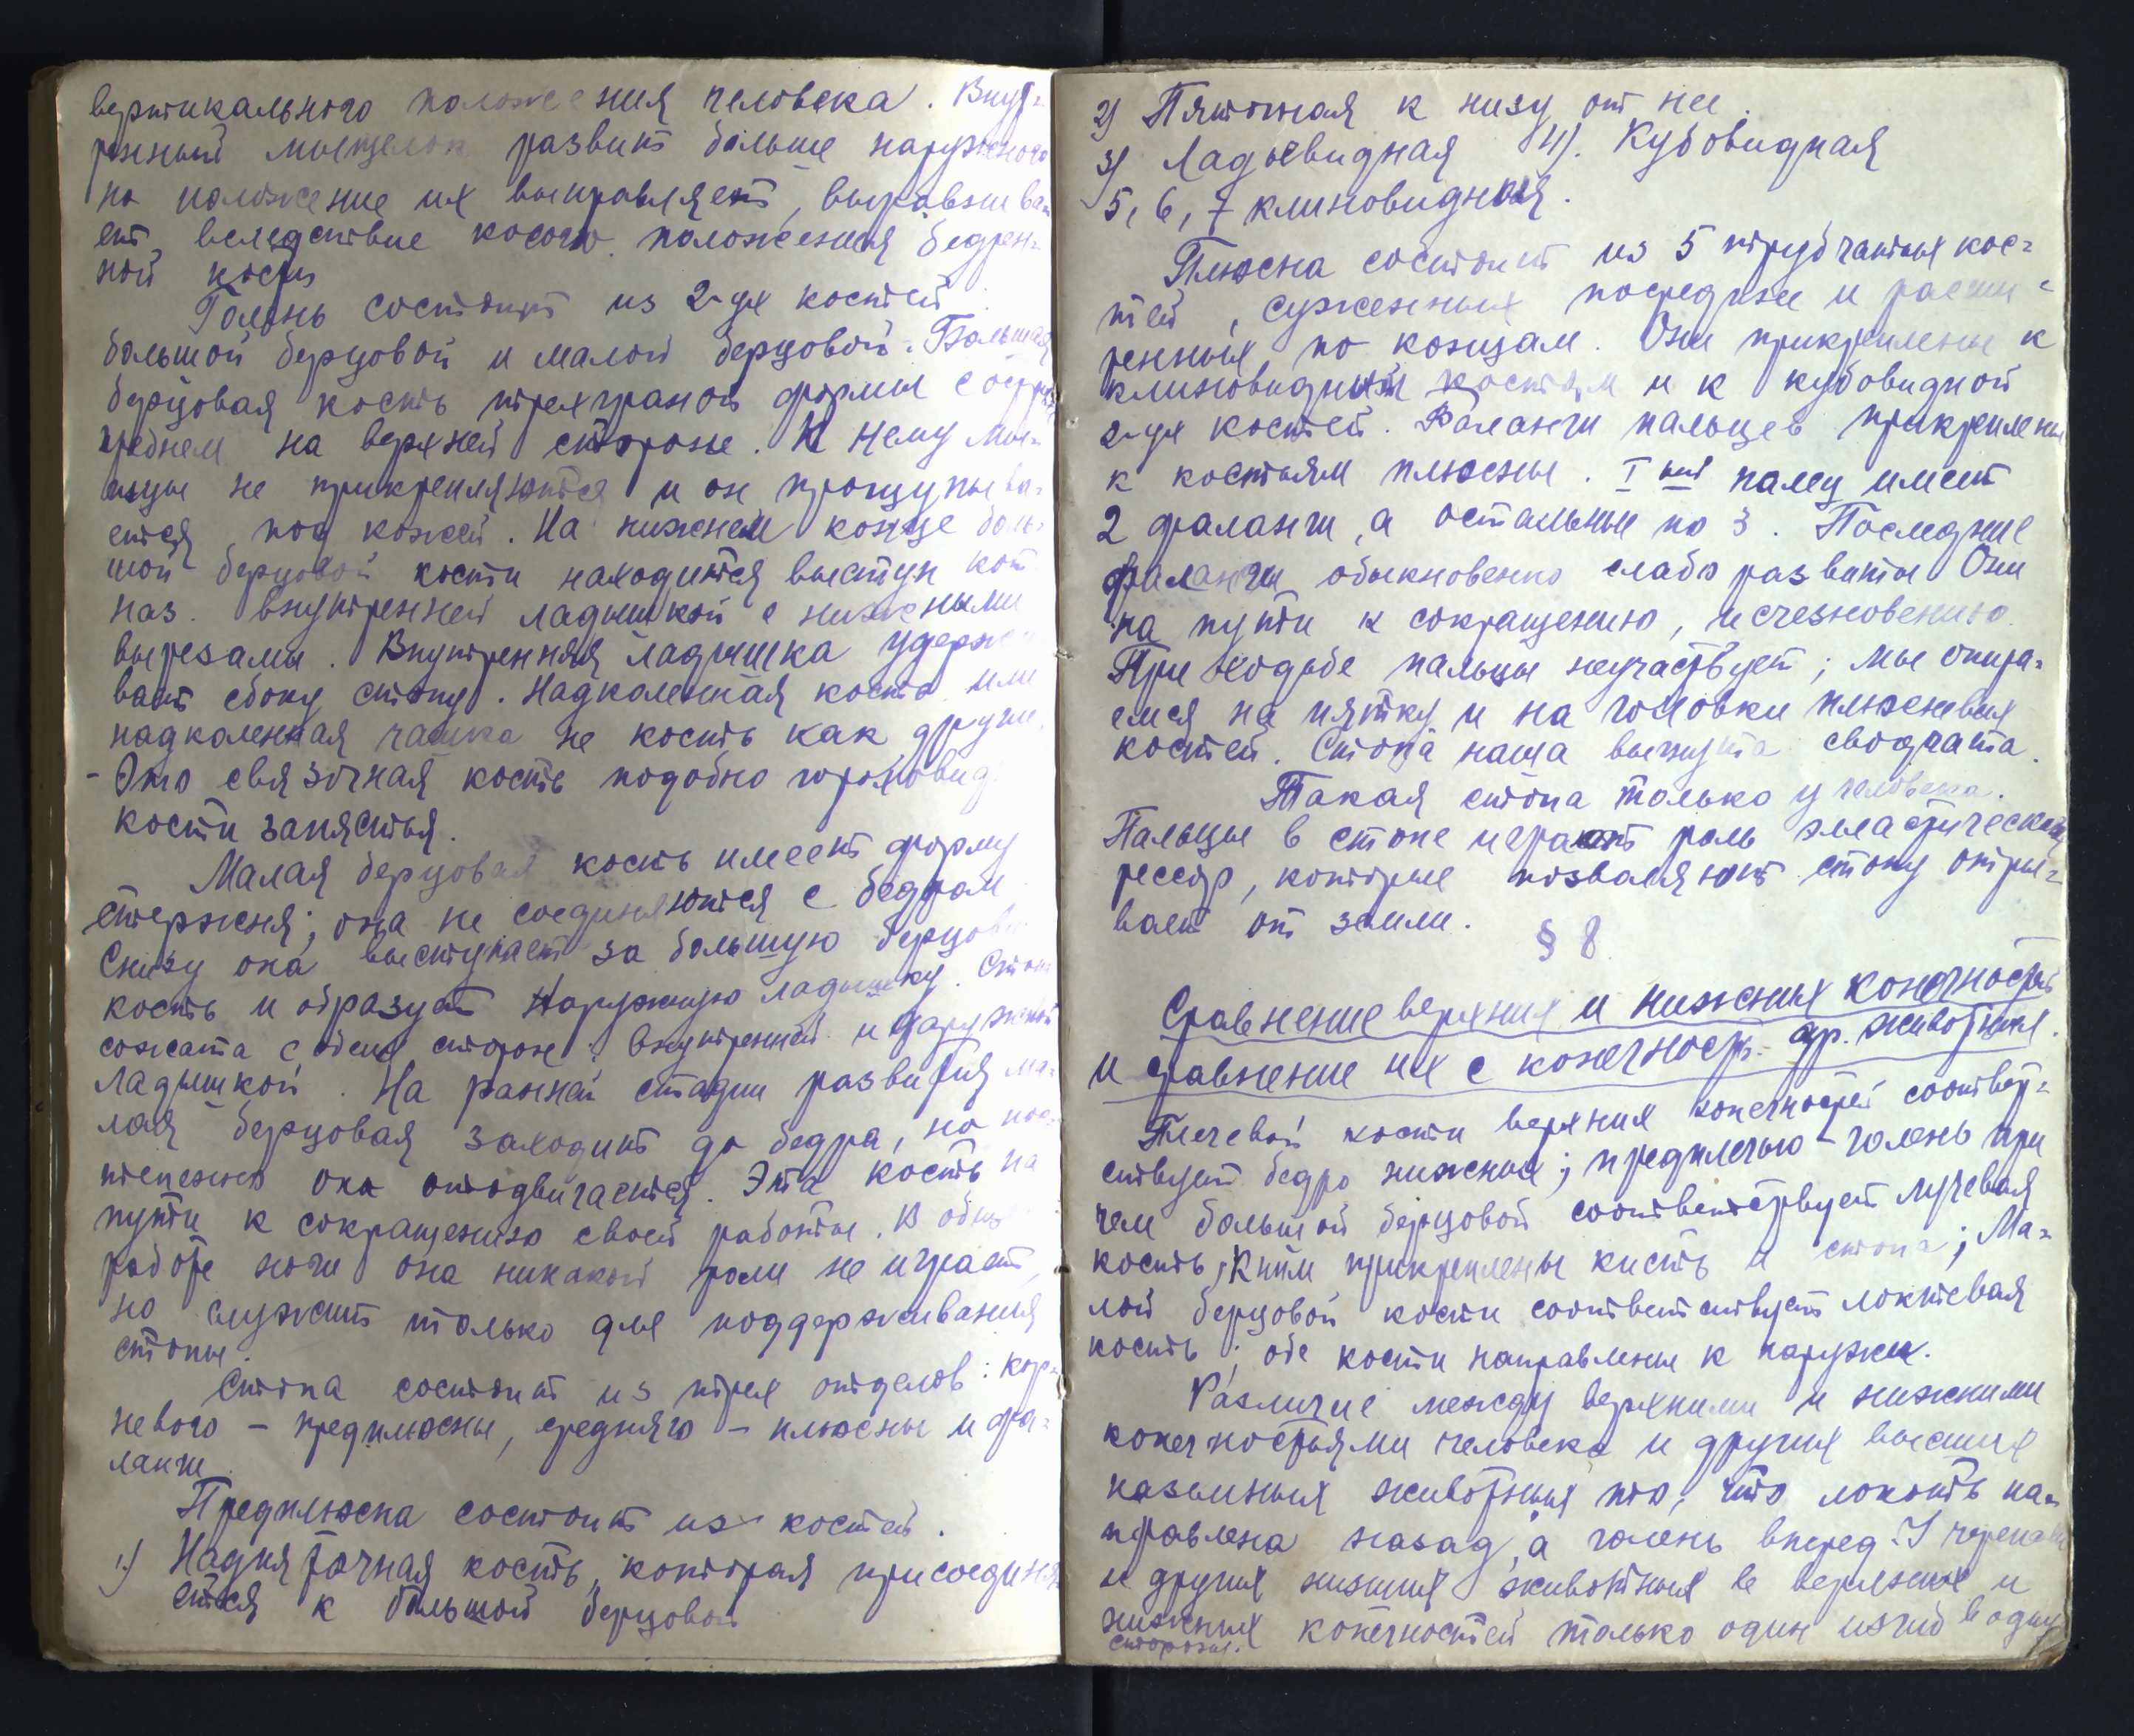 вертикального положения человека. Внут-
ренный мыщелок развит больше наружного
но положение их выправляет, выравнива
ет, вследствие косого положения бедрен-
ной кости
Голень состоит из 2-ух костей
большой берцовой и малой берцовой. Большая
берцовая кость трехгранной формы с острым
гребнем на верхней стороне. К нему мы-
шцы не прикрепляются и он прощупыва-
ется под кожей. На нижнем конце боль-
шой берцовой кости находится выступ кот.
наз. внутренней ладыжкой с нижными
вырезами. Внутренняя ладышка удержи
вает сбоку стопу. Надколенная кость или
надколенная чашка не кость как други.
- Это связочная кость подобно гороховид.
кости запястья.
Малая берцовая кость имеет форму
стержня; она не соединяются с бедром
Снизу она выступает за большую берцову
кость и образует наружную ладышку. Стопа
сожата с обеих сторон: внутренней и наружной
ладышкой. На ранней стадии развития ма-
лая берцовая заходит до бедра, но пос-
тепенно она отодвигается. Эта кость на
пути к сокращению своей работы. В общ
работе ноги она никакой роли не играет,
но служит только для поддерживания
стопы.
Стопа состоит из трех отделов: кор-
невого – предплюсны, среднего – плюсны и фа-
ланги
Предплюсна состоит из костей.
1.) Надпяточная кость, которая присоединя
ется к большой берцовой
2) Пяточная к низу от нее.
3) Ладьевидная 4). Кубовидная
5, 6, 7 клиновидная.
Плюсна состоит из 5 трубчатых кос-
тей, суженных посредине и расши-
ренных по концам. Они прикреплены к
клиновидным костям и к кубовидной
2-ух костей. Фаланги пальцев прикреплены
к костьям плюсны. I ый палец имеет
2 фаланги, а остальные по 3. Последние
фаланги обыкновенно слабо развиты Они
на пути к сокращению, исчезновению.
При ходьбе пальцы неучаствует; мы опира-
емся на пятку и на головки плюсневых
костей. Стопа наша выгнута сводчата.
Такая стопа только у человека.
Пальцы в стопе играют роль эластической
рессор, которые позваляют стопу отры-
вает от земли.
§ 8
Сравнение верхних и нижних конечностей
и сравнение их с конечность. др. животных.
Плечевой кости верхних конечностей соответ-
ствует бедро нижных; предплечью – голень при
чем большой берцовой соответствует лучевая
кость, к ним прикреплены кисть и стопа; Ма-
лой берцовой кости соответствует локтевая
кость; обе кости направлены к наружи.
Различие между верхними и нижними
конечностьями человека и других высших
наземных животных то, что локоть на-
правлена назад, а голень вперед. У черепахи
и других низших животных в верхних и
нижних конечностей только один изгиб в одну
сторону.